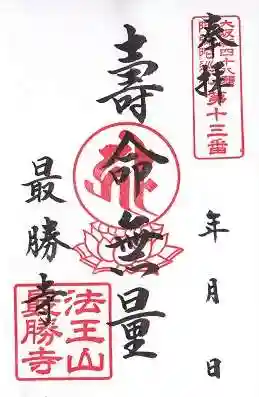 奉拝
大阪新四十八願
阿弥陀巡礼
第十三番
年月日
壽命無量
最勝寺
法王山
最勝寺